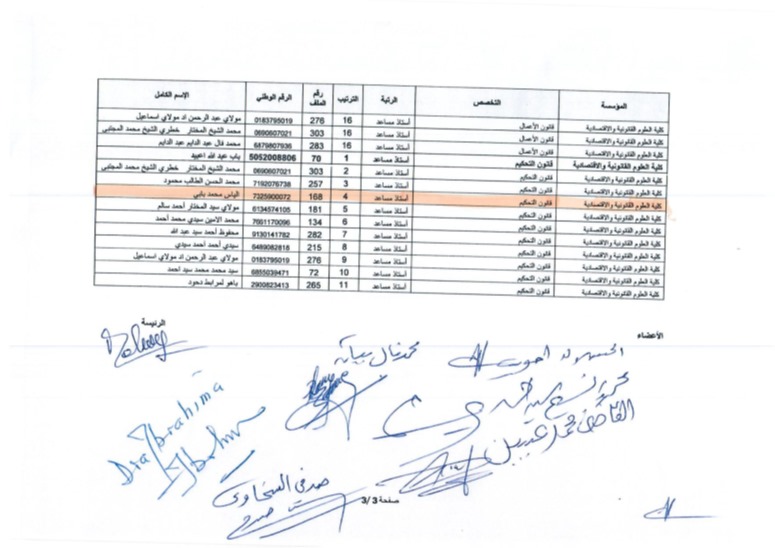 المؤسسة التخصص الرتبة الترتيب رقم الملف الرقم الوطني الإسم الكامل
كلية العلوم القانونية والاقتصادية قانون الأعمال أستاذ مساعد 16 276 0183795019 مولاي عبد الرحمن اد مولاي اسماعيل
كلية العلوم القانونية والاقتصادية قانون الأعمال أستاذ مساعد 16 303 0690607021 محمد الشيخ المختار خطري الشيخ محمد المجتبى
كلية العلوم القانونية والاقتصادية قانون الأعمال أستاذ مساعد 16 283 6879807936 محمد فال عبد الدايم عبد الدايم
كلية العلوم القانونية والاقتصادية قانون التحكيم أستاذ مساعد 1 70 5052008806 باب عبد الله اعبيد
كلية العلوم القانونية والاقتصادية قانون التحكيم أستاذ مساعد 2 303 0690607021 محمد الشيخ المختار خطري الشيخ محمد المجتبى
كلية العلوم القانونية والاقتصادية قانون التحكيم أستاذ مساعد 3 257 7192076738 محمد الحسن الطالب محمود
كلية العلوم القانونية والاقتصادية قانون التحكيم أستاذ مساعد 4 168 7325900072 الياس محمد بابي
كلية العلوم القانونية والاقتصادية قانون التحكيم أستاذ مساعد 5 181 6134574105 مولاي سيد المختار أحمد سالم
كلية العلوم القانونية والاقتصادية قانون التحكيم أستاذ مساعد 6 134 7661170096 محمد الامين سيدي محمد أحمد
كلية العلوم القانونية والاقتصادية قانون التحكيم أستاذ مساعد 7 282 9130141782 محفوظ أحمد سيد عبد الله
كلية العلوم القانونية والاقتصادية قانون التحكيم أستاذ مساعد 8 215 6489082816 سيدي أحمد أحمد سيدي
كلية العلوم القانونية والاقتصادية قانون التحكيم أستاذ مساعد 9 276 0183795019 مولاي عبد الرحمن اد مولاي اسماعيل
كلية العلوم القانونية والاقتصادية قانون التحكيم أستاذ مساعد 10 72 6855039471 سيد محمد محمد سيد احمد
كلية العلوم القانونية والاقتصادية قانون التحكيم أستاذ مساعد 11 265 2900823413 باهو لمرابط دحود
الأعضاء الرئيسة
محمد فال
Dia Ibrahima
القاضي محمد
صدفي السخاوي
صفحة 3/3